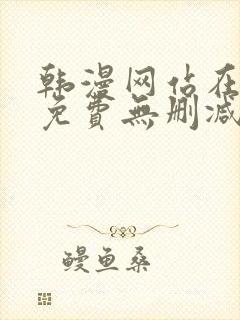 韩漫网站在
免費無删减
鳗鱼桑